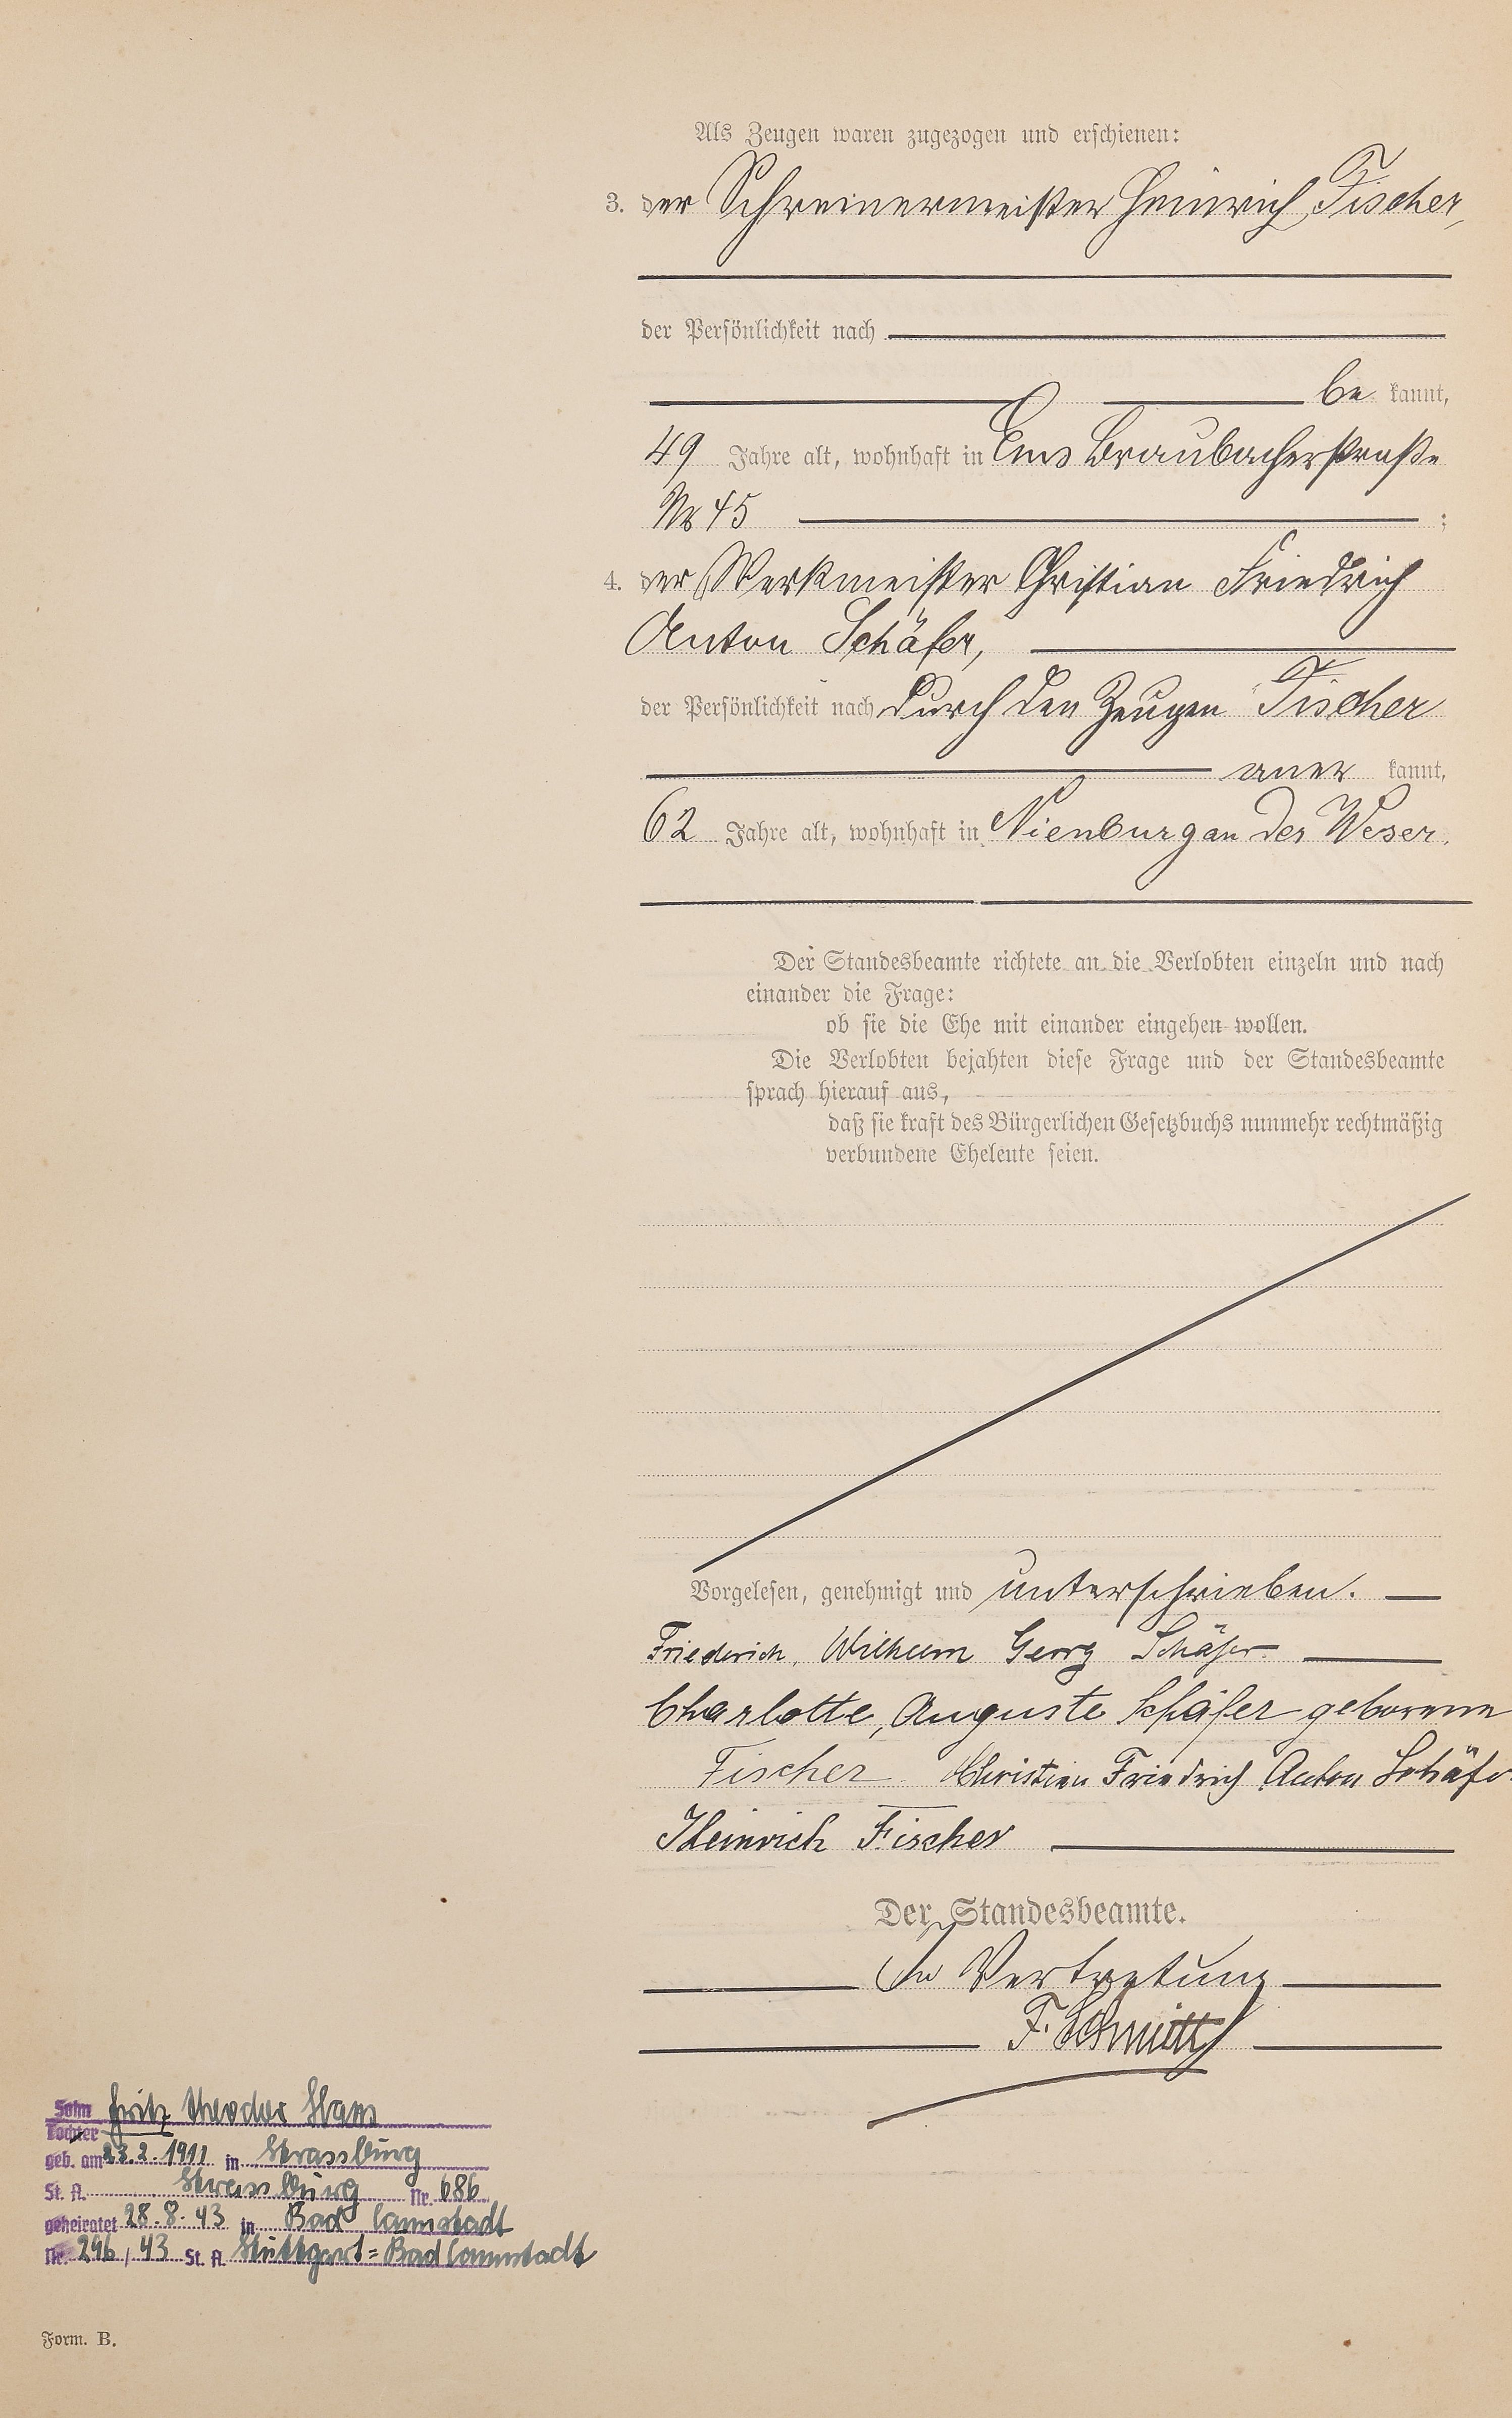 Als Zeugen waren zugezogen und erschienen:
3. der Schreinermeister Heinrich Fischer,
der Persönlichkeit nach
be kannt,
49 Jahre alt, wohnhaft in Ems Braubacherstraße
№ 45 ;
4. der Werkmeister Christian Friedrich
Anton Schäfer,
der Persönlichkeit nach durch den Zeugen Fischer
aner kannt,
62 Jahre alt, wohnhaft in Nienburg an der Weser.
Der Standesbeamte richtete an die Verlobten einzeln und nach
einander die Frage:
ob sie die Ehe mit einander eingehen wollen.
Die Verlobten bejahten diese Frage und der Standesbeamte
sprach hierauf aus,
daß sie kraft des Bürgerlichen Gesetzbuchs nunmehr rechtmäßig
verbundene Eheleute seien.
Vorgelesen, genehmigt und unterschrieben.
Friederich, Wilhelm Georg Schäfer
Charlotte, Auguste Schäfer geborene
Fischer. Christian Friedrich Anton Schäfer
Heinrich Fischer
Der Standesbeamte.
In Vertretung
F. Schmitt
Sohn Fritz Theodor Hans
Tochter
geb. am 23.2.1911 in Strassburg
St. A. Strassburg Nr. 686
geheiratet 28.8.43 in Bad Cannstadt
Nr. 296/43 St. A. Stuttgart=Bad Cannstadt
Form. B.